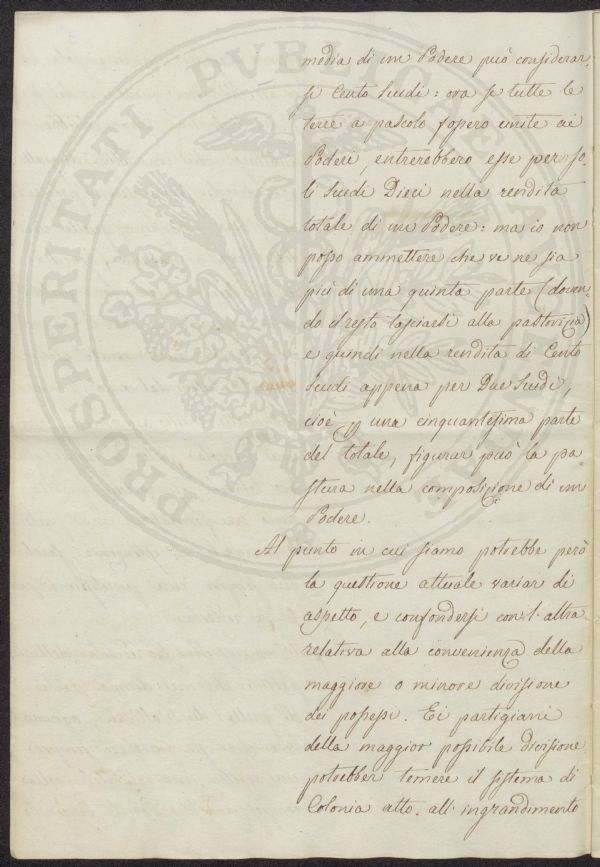 media di un Podere può considerar-
si Cento Scudi: ora se tutte le
terre a pascolo fossero unite ai
Poderi, entrerebbero esse per so-
li Scudi Dieci nella rendita
totale di un Podere: ma io non
posso ammettere che ve ne sia
più di una quinta parte (doven-
do il resto lasciarsi alla pastorizia)
e quindi nella rendita di Cento
Scudi appena per Due Scudi,
cioè una cinquantesima parte
del totale, figurar può la pa
stura nella composizione di un
Podere.
Al punto in cui siamo potrebbe però
la questione attuale variar di
aspetto, e confondersi con l'altra
relativa alla convenienza della
maggiore o minore divisione
dei possessi. Ei partigiani
della maggior possibile divisione
potrebber temere il sistema di
Colonia atto. all'ingrandimento
PROSPERITATI PVBLICAE